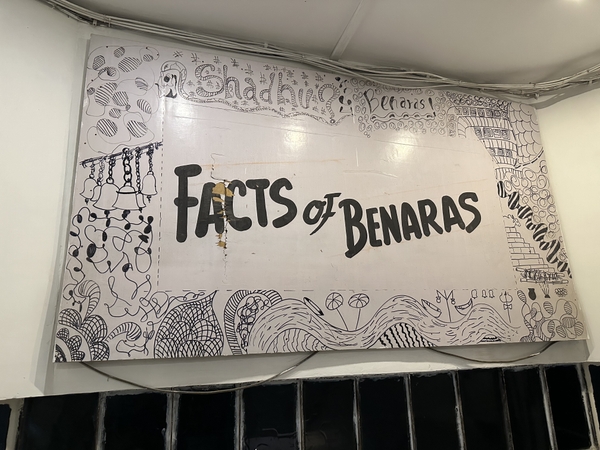 Shadhu
Benaras!
FACTS OF BENARAS